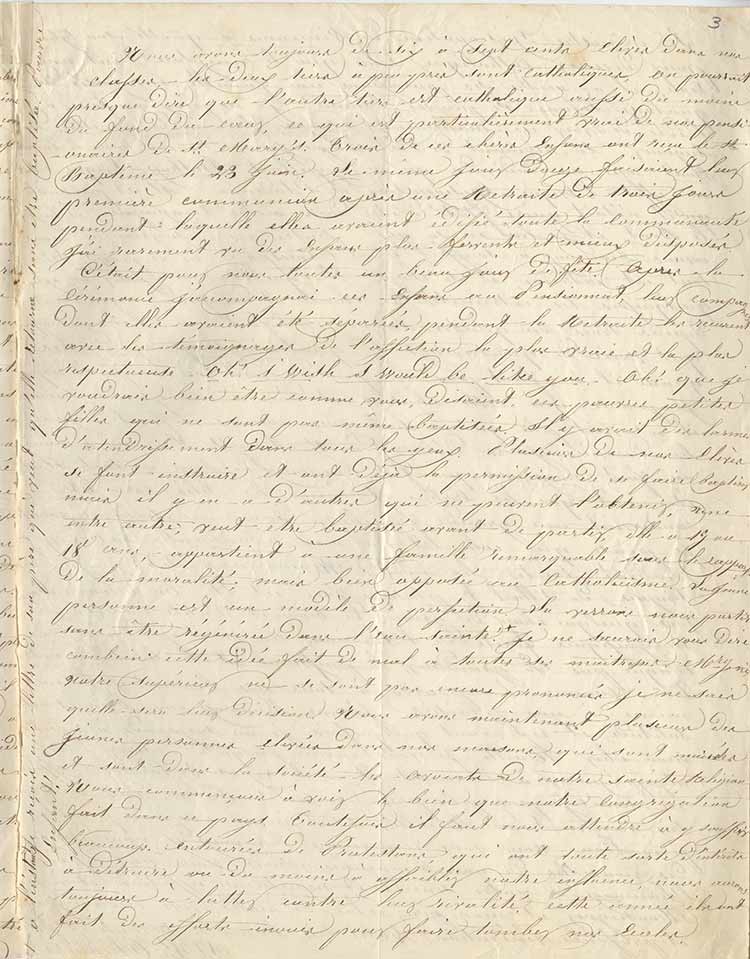 3
Nous avons toujours de six à sept cents Elèves dans nos
classes, les deux tiers à peu près sont catholiques, on pourrait
presque dire que l'autre tiers est catholique aussi du moins
du fond du cœur, ce qui est particulièrement vrai de nos pensi
onnaires de St Mary's. Trois de ces chères Enfans ont reçu le St
Baptême le 23 Juin. Le même jour douze faisaient leur
première communion après une Retraite de trois jours
pendant laquelle elles avaient édifié toute la communauté
J'ai rarement vu des Enfans plus fervents et mieux disposés
C'était pour nous toutes un beau jour de fête. Après la
Cérémonie j'accompagnai ces Enfans au Pensionnat, leurs compag
dont elles avaient été séparées, pendant la Retraite les reçurent
avec les témoignages de l'affection la plus vraie et la plus
respectueuse Oh! I wish I would be like you. Oh! que je
voudrais bien être comme vous, disaient ces pauvres petites
filles qui ne sont pas même baptisées Il y avait des larmes
d'attendrissement dans tous les yeux. Plusieurs de nos Elèves
se font instruire et ont déjà la permission de se faire baptiser
mais il y en a d'autres qui ne peuvent l'obtenir, Une
entre autre, veut être baptisée avant de partir, elle a 17 ou
18 ans, appartient à une famille remarquable sous le rappor
de la moralité, mais bien opposée au Catholicisme. La jeune
personne est un modèle de perfection La verrons nous partir
sans être régénérée dans l'eau sainte? + Je ne saurais vous dire
combien cette idée fait de mal à toutes ses maitresses.
Notre Supérieur ne se sont pas encore prononcés je ne sais
quelle sera leur décision. Nous avons maintenant plusieurs des
jeunes personnes élevées dans nos maisons, qui sont mariées
et sont dans la société les avocats de notre sainte Religion
Nous commençons à voir le bien que notre Congrégation
fait dans ce pays Toutefois il faut nous attendre à y souffrir
beaucoup. Entourées de Protestans, qui ont toute sorte d'intérêts
à détruire ou du moins à affaiblir notre influence, nous aurons
toujours à lutter contre leur rivalité, cette année ils ont
fait des efforts inouis pour faire tomber nos Ecoles.
reçois une lettre de son père qui veut qu'elle retourne sans être baptisée,